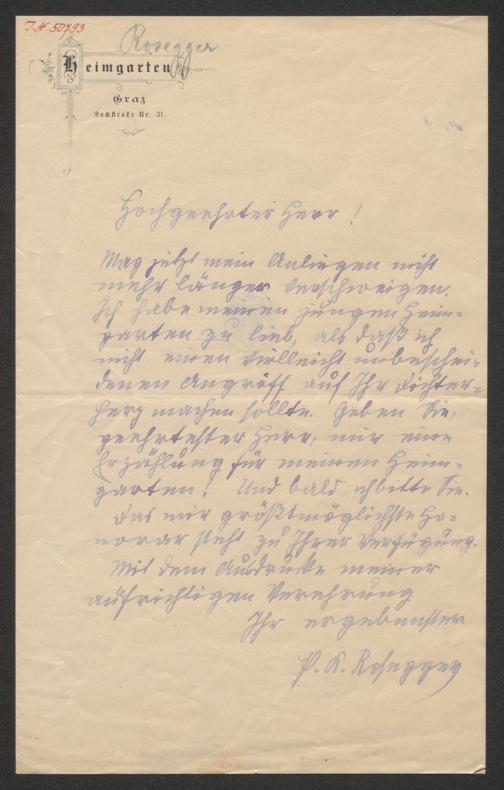 I.N. 50793
Rosegger
Heimgarten
Graz
Sackstraße Nr. 31.
Hochgeehrter Herr!
Mag jetzt mein Anliegen nicht
mehr länger verschweigen.
Ich habe meinen jungen Heim-
garten zu lieb, als daß ich
nicht einen vielleicht unbeschei-
denen Angriff auf Ihr Dichter-
herz machen sollte. Geben Sie,
geehrtester Herr, mir eine
Erzählung für meinen Heim-
garten! Und bald, ich bitte Sie.
Das mir größtmöglichste Ho-
norar steht zu Ihrer Verfügung.
Mit dem Ausdrucke meiner
aufrichtigen Verehrung
Ihr ergebenster
P. K. Rosegger